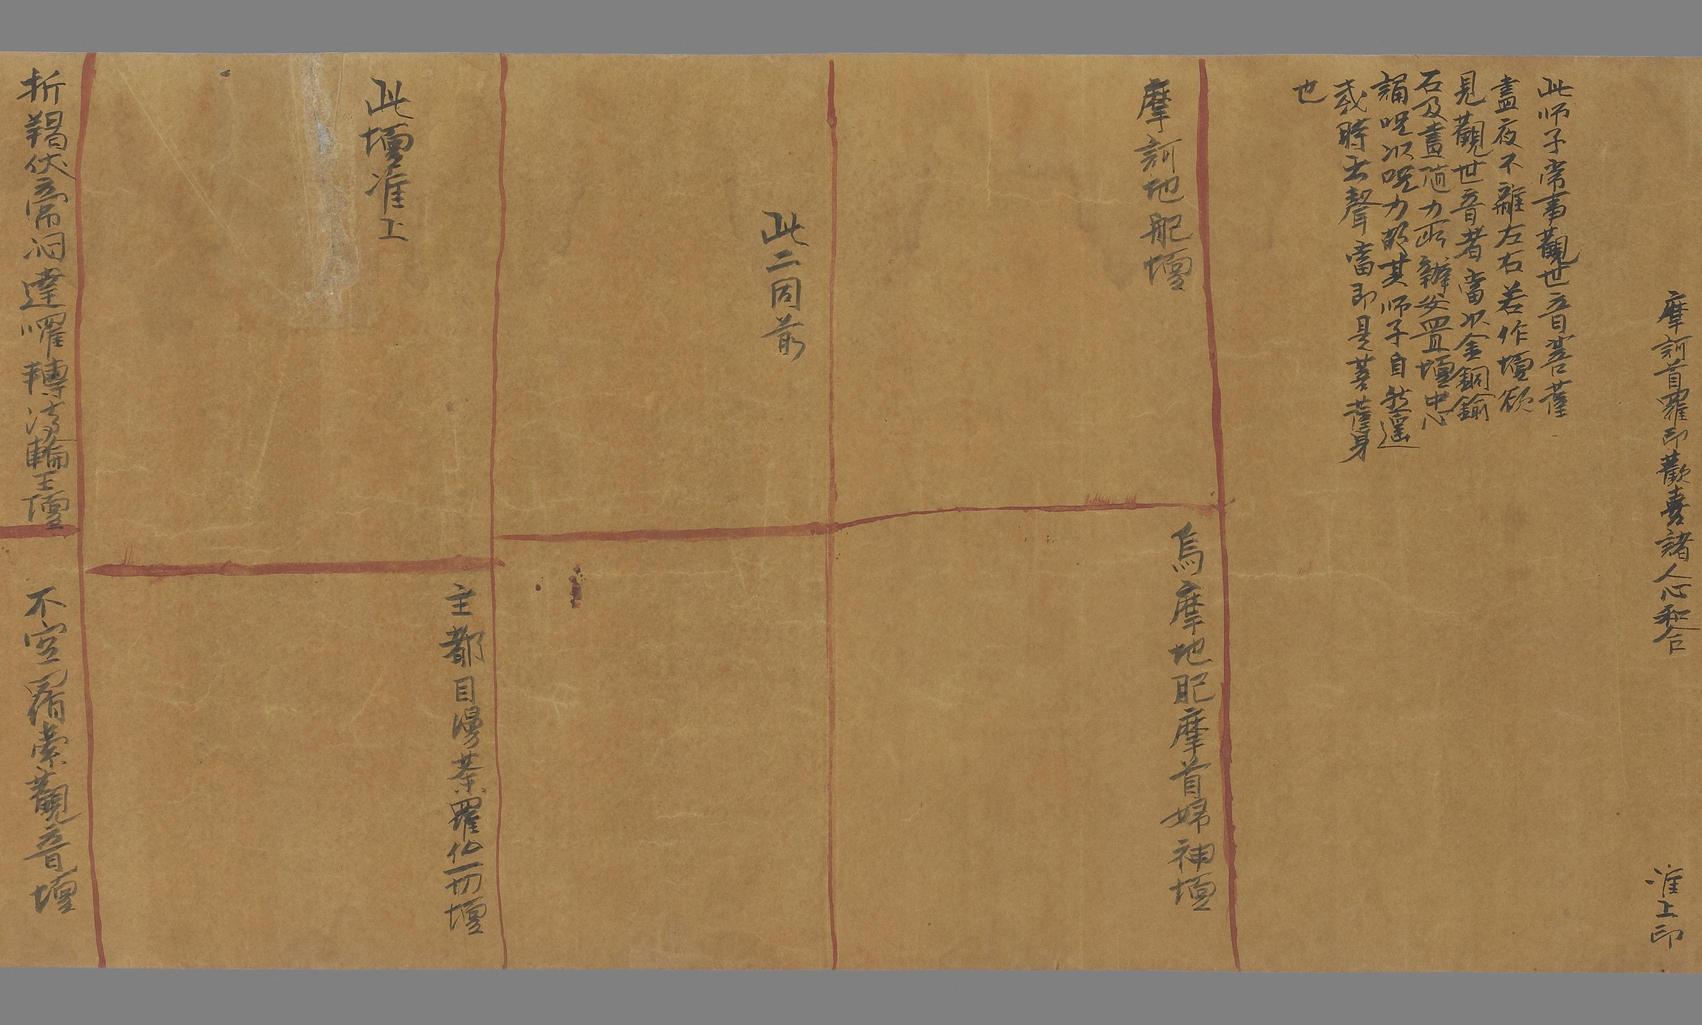 摩訶首羅印歡喜諸人心和合
准上印
此师子常事觀世音菩薩
晝夜不離左右若作壇欲
見觀世音者當以金銅鍮
石及畫随力所辦安置壇中心
誦呪以呪力故其师子自然遥
或時出聲當即是菩薩身
也
摩訶地肥壇
烏摩地肥摩首婦神壇
此二同前
此壇准上
主都目漫荼羅仏一切壇
折羯伏帝  達囉轉法輪王壇
不空罥索觀音壇